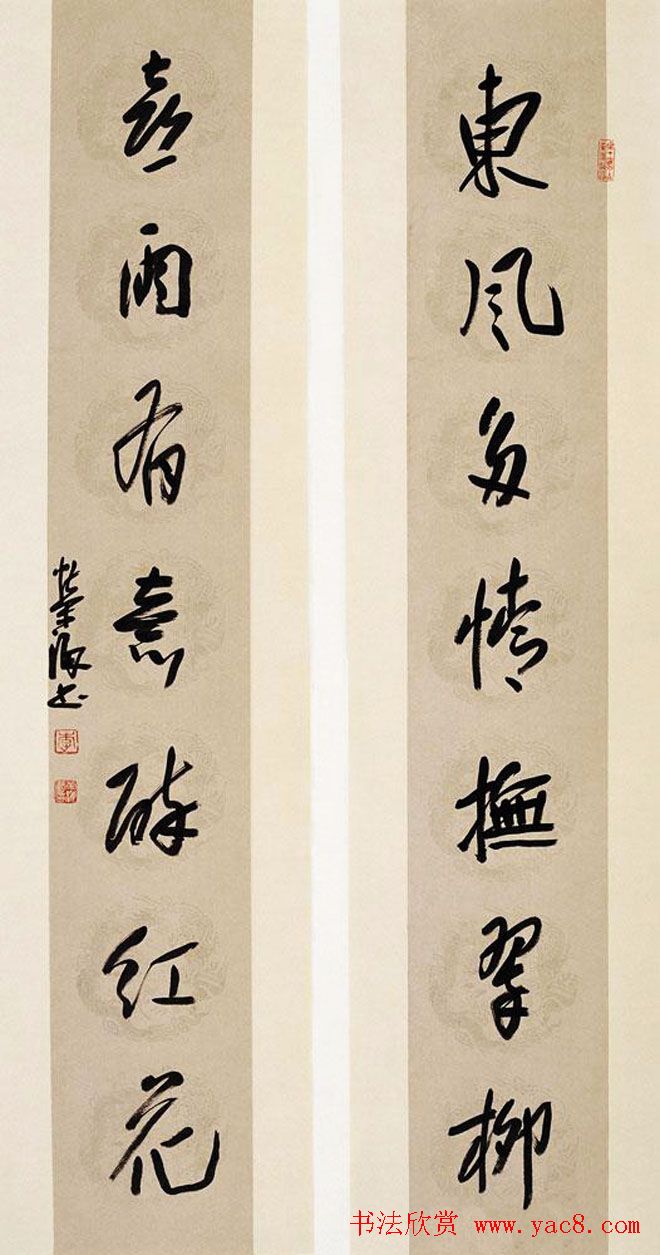 東风多情撫翠柳
喜雨有意醉红花
荣海书
书法欣赏 www.yac8.com